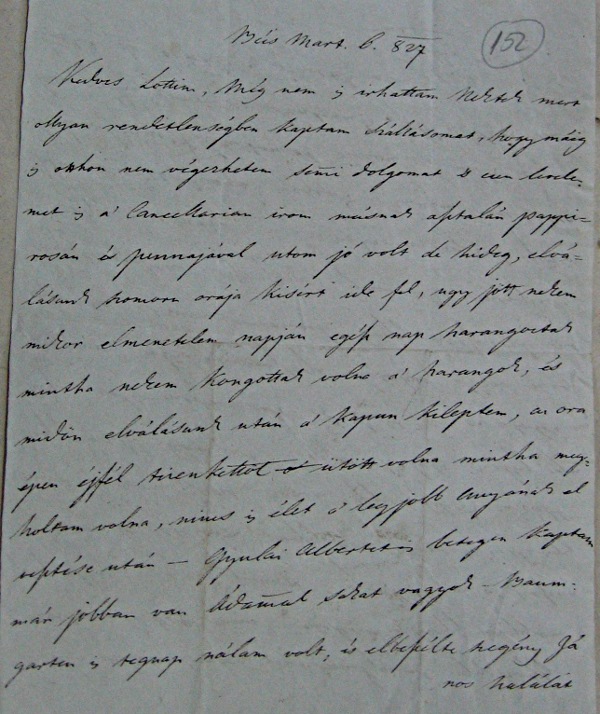 Bécs Mart. 6. 827
152
Kedves Lottim, Még nem is irhattam Nektek mert
ollyan rendetlenségben kaptam szállásomat, hogy máig
is otthon nem végezhetem semi dolgomat s ezen levele-
met is a' Cancellarian irom másnak asztalán pappi-
rosán és pennajával utom jó volt de hideg, elvá-
lásunk szomoru orája kisért ide fel, ugy jött nekem
mikor elmenetelem napján egész nap harangoztak
mintha nekem kongottak volna a' harangok, és
midőn elválásunk után a' kapun kiléptem, az ora
épen éjfél tizenkettöt ütött volna mintha meg-
holtam volna, nincs is élet a' legjobb Anyának el
vesztése után — Gyulai Albertet is betegen kaptam
már jobban van Ádámmal sokat vagyok — Baum-
garten is tegnap nálam volt, és elbeszélte szegény Já
nos halálát